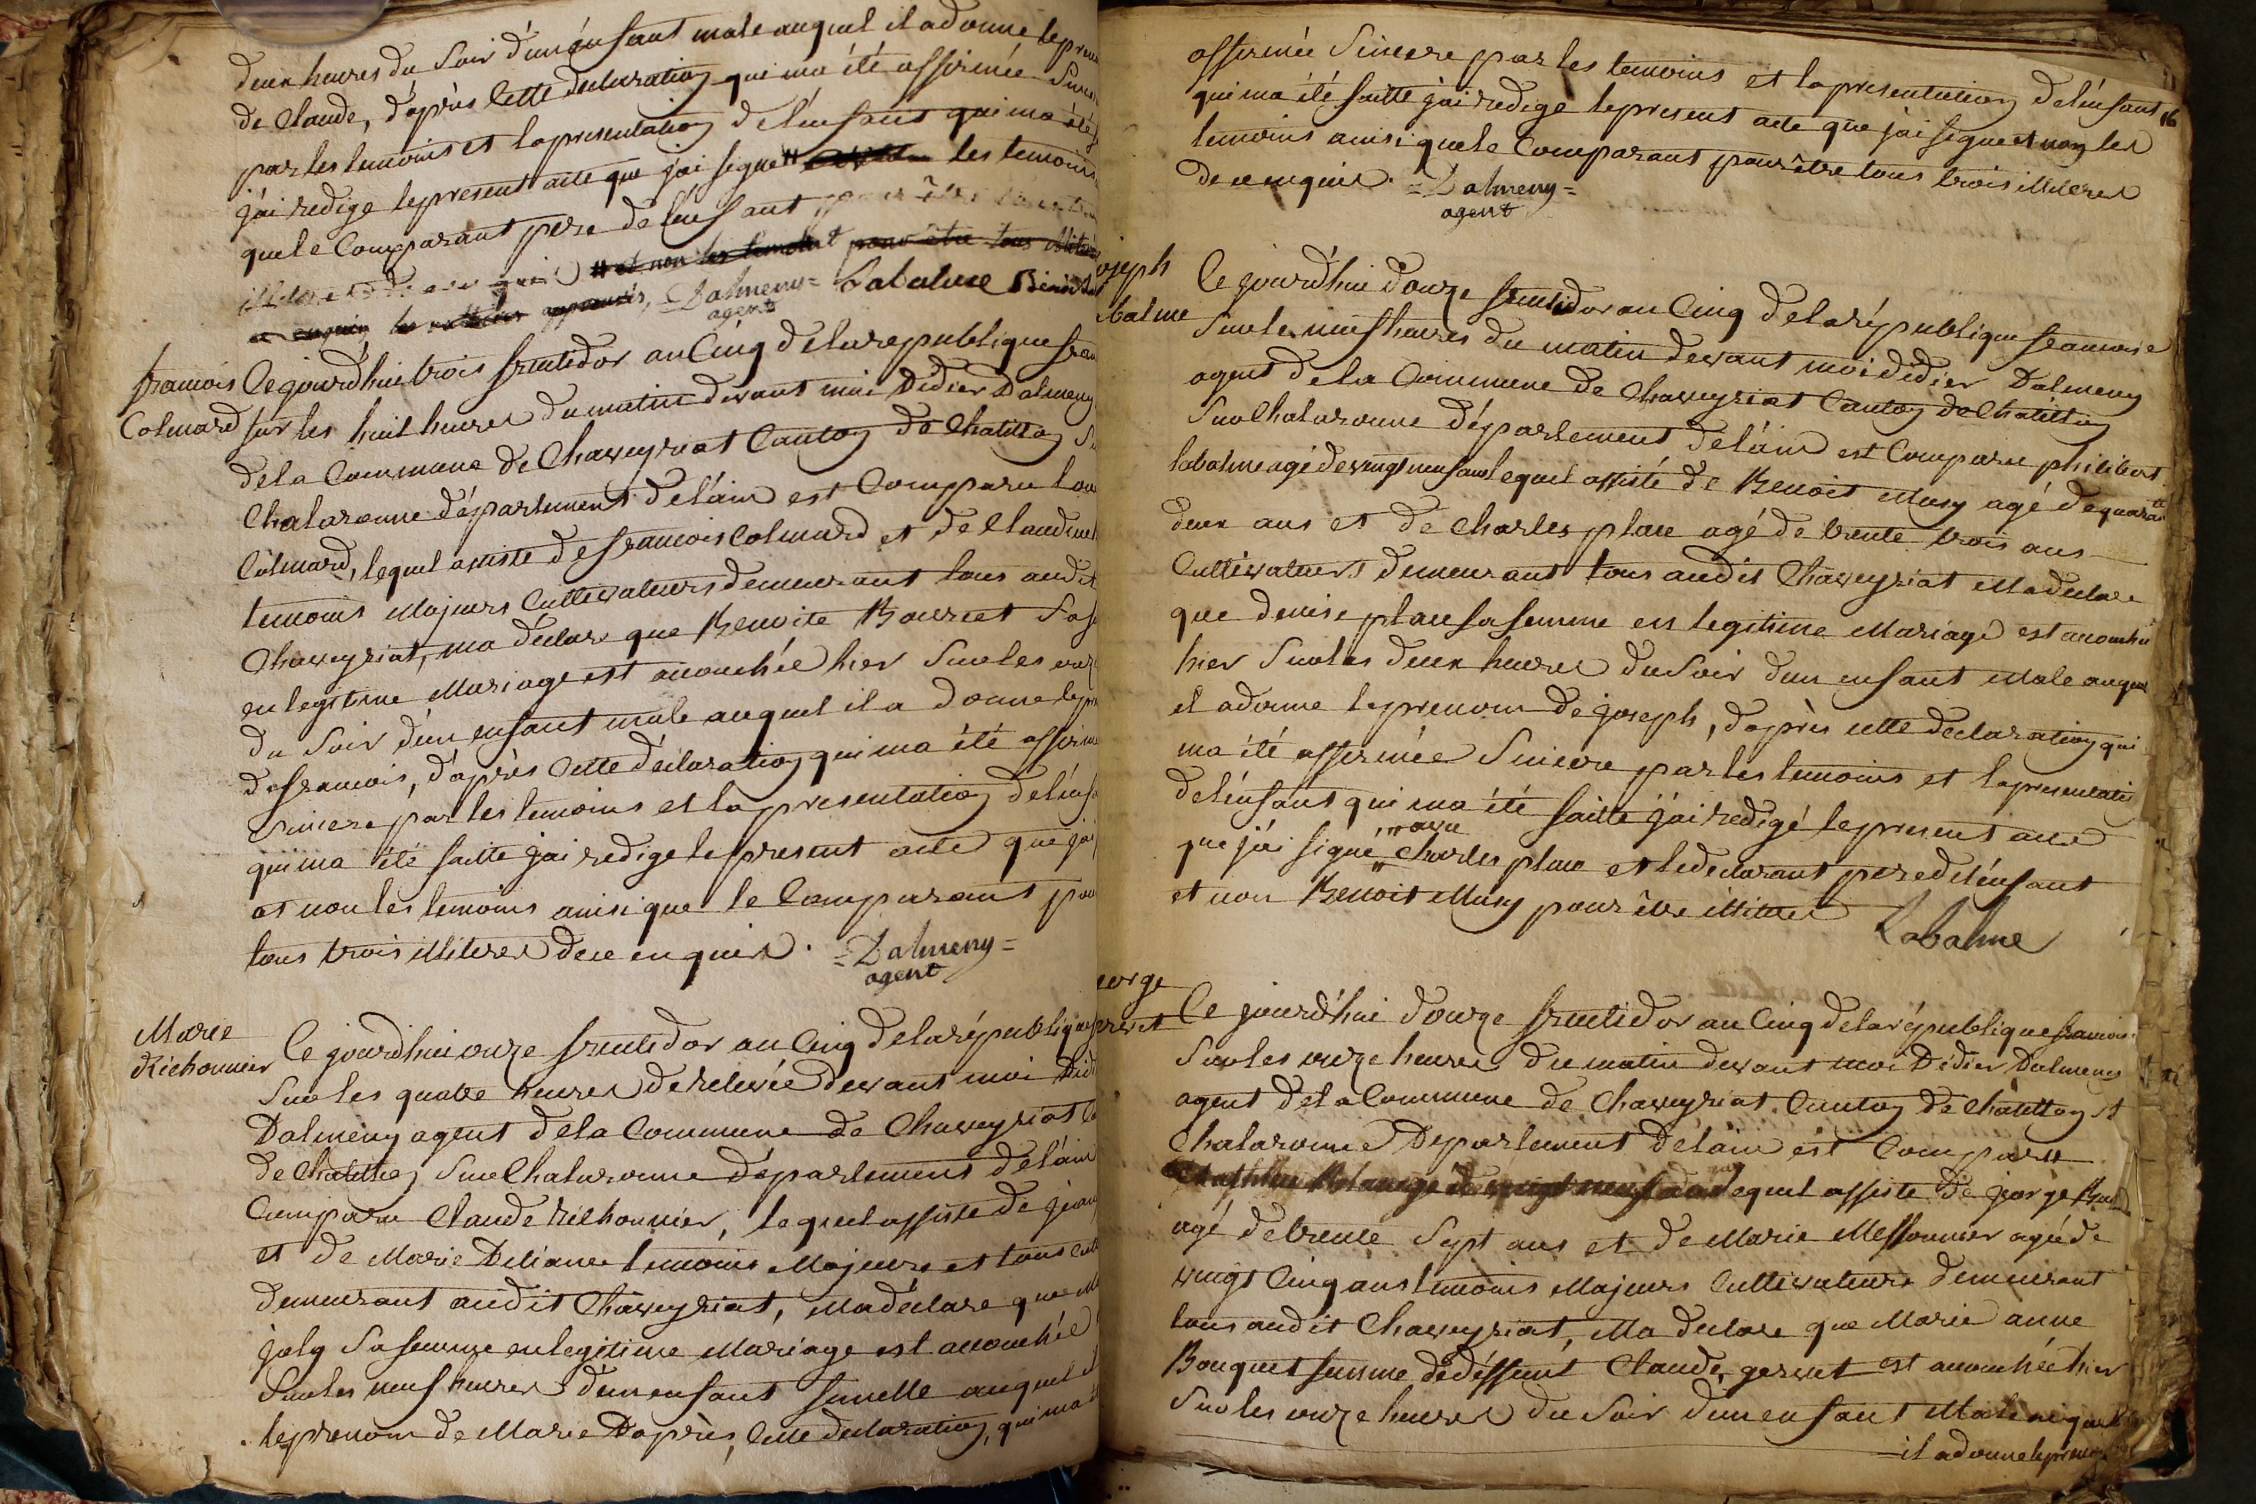 deux heures du soir d'un énfant male auquel il a donné le pren
de Claude, d'aprés Cette declaration qui ma été affirmée Since
par les temoins et la presentation de l'énfant qui ma été
j'ai redigé le present acte que j'ai signé les temoins
que le Comparant pere de l'énfant
et non les temoins pour être tous
Dalmeny Labalme Benoit
agent
francois
Colmard
Ce jourd'hui trois fructidor an Cinq de la republique fran
sur les huit heures du matin devant moi Didier Dalmeny
de la Commune de Chaveyriat Canton de Chatillon Su
Chalaronne département de l'ain est Comparu Lou
Colmard, lequel assisté de francois Colmard et de Claudine
temoins Majeurs Cultivateurs demeurant tous audit
Chaveyriat, ma déclare que Benoite Bouvret Sa fe
en legitime Mariage est acouchée hier Sur les onz
du Soir d'un enfant male auquel il a donné le pr
de francois, d'aprés Cette déclaration qui ma été affirme
Sincere par les temoins et la presentation de l'énfa
qui ma été faitte j'ai redigé le present acte que j'ai
et non les temoins ainsi que le Comparant pou
tous trois illitres de ce enquis. =Dalmeny=
agent
Marie
Richonnier
Ce jourd'hui onze fructidor an Cinq de la république
Sur les quatre heures de relevée devant moi Did
Dalmeny agent de la Commune de Chaveyriat Ca
de Chatillon Sur Chalaronne département de l'ain
Comparu Claude Richonnier, lequel assisté de jean
et de Marie Deliance temoins Majeurs et tous cult
demeurant audit Chaveyriat, Ma déclare que M
joly Sa femme en legitime Mariage est acouchée
Sur les neuf heures d'un enfant femelle auquel il
le prenom de Marie D'aprés, Cette declaration, qui ma
affirmée Sincere par les temoins et la presentation de l'énfant 16
qui ma été faitte j'ai redigé le present acte que j'ai signé et non les
temoins ainsi que le Comparant pour être tous trois illitres
de ce enquis. =Dalmeny=
agent
oseph
balme
Ce jourd'hui douze fructidor an Cinq de la république francaise
Sur les neuf heures du matin devant moi didier Dalmeny
agent de la Commune de Chaveyriat Canton de Chatillon
Sur Chalaronne département de l'ain est Comparu philibert
labalme agé de vingt neuf ans lequel assisté de Benoit Musy agé de quarante
deux ans et de Charles place agé de trente trois ans
Cultivateurs demeurant tous audit Chaveyriat Ma declare
que denise place sa femme en legitime Mariage est acouchée
hier Sur les deux heures du Soir d'un enfant Male auquel
il a donné le prenom de joseph, d'aprés cette declaration qui
ma été affirmée Sincere par les temoins et la presentation
de l'énfant qui ma été faitte j'ai redigé le present acte
que j'ai signé "avec" Charles place et le declarant pere de l'énfant
et non Benoit Musy pour être illitres
Labalme
eorge
ervet
Ce jourd'hui douze fructidor an Cinq de la république francoise
Sur les onze heures du matin devant moi Didier Dalmeny
agent de la Commune de Chaveyriat Canton de Chatillon St
Chalaronne Departement de l'ain est Comparu
lequel assisté de george
agé de trente Sept ans et de Marie Messonnier agée de
vingt Cinq ans temoins Majeurs Cultivateurs demeurant
tous audit Chaveyriat, Ma declare que Marie anne
Bouquet femme de déffunt Claude, gervet est acouchée hier
Sur les onze heures du Soir d'un enfant Male auquel
il a donné le prenom